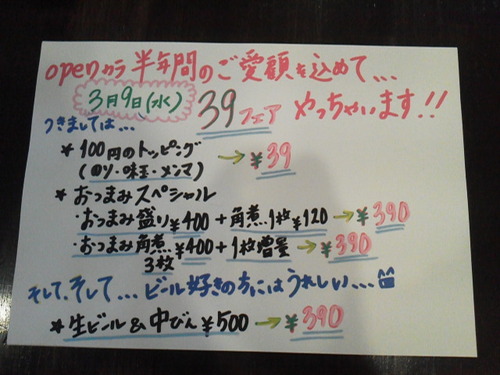 openから半年間のご愛顧を込めて...
3月9日(水)
39フェア やっちゃいます!!
つきましては...
* 100円のトッピング → ¥39
(のり・味玉・メンマ)
* おつまみスペシャル
・おつまみ盛り¥400 + 角煮1枚¥120 → ¥390
・おつまみ角煮3枚¥400 + 1枚増量 → ¥390
そして、そして... ビール好きの方にはうれしい...
* 生ビール&中びん¥500 → ¥390